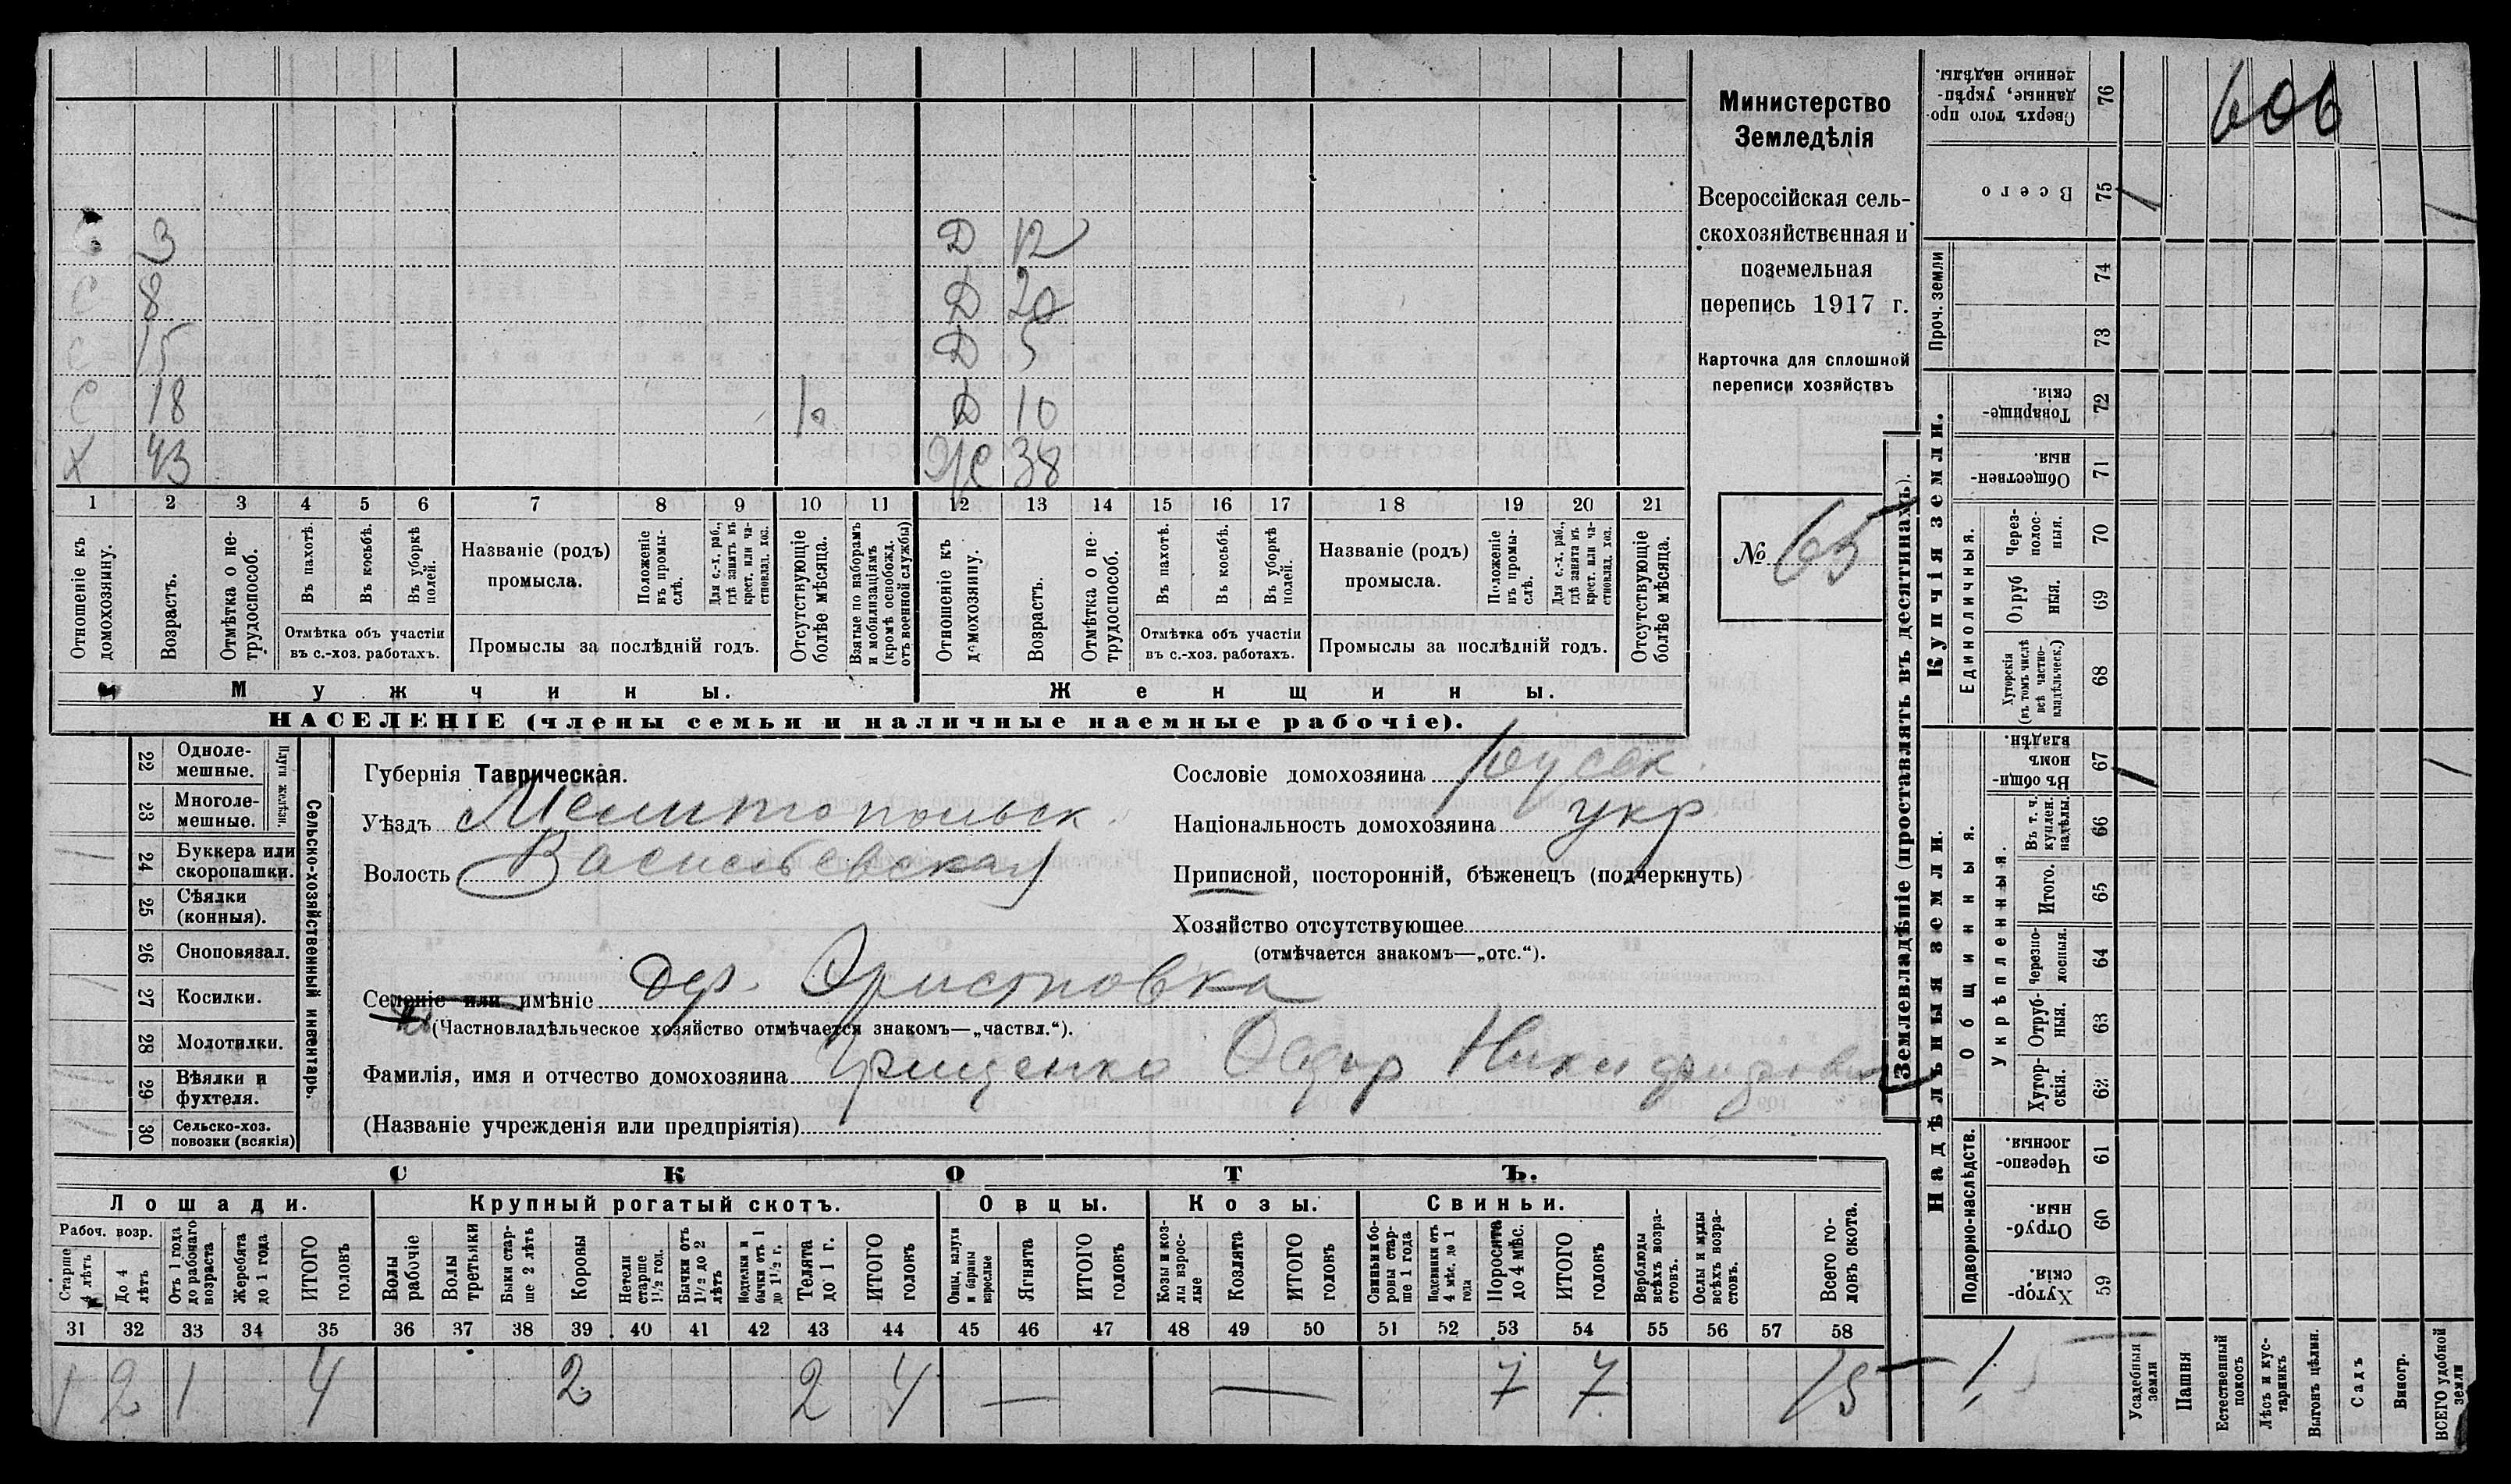 Министерство
Земледѣлія
Всероссійская сель-
скохозяйственная и
поземельная
перепись 1917 г.
Карточка для сплошной
переписи хозяйствъ
№ 65
С 3 Д 12
С 8 Д 20
С 15 Д 5
С 18 Д 10
Х 43 Ж 38
1 2 3 4 5 6 7 8 9 10 11 12 13 14 15 16 17 18 19 20 21
Отношеніе къ домохозяину.
Возрастъ.
Отмѣтка о не-трудоспособ.
Въ пахотѣ.
Въ косьбѣ.
Въ уборкѣ полей.
Отмѣтка объ участіи
въ с.-хоз. работахъ.
Названіе (родъ)
промысла.
Положеніе въ промы-слѣ.
Для с.-х. раб., гдѣ занятъ въ крест. или ча-стновлад. хоз.
Промыслы за послѣдній годъ.
Отсутствующіе болѣе мѣсяца.
Взятые по наборамъ и мобилизаціямъ (кромѣ освобожд. отъ военной службы)
Отношеніе къ домохозяину.
Возрастъ.
Отмѣтка о не-трудоспособ.
Въ пахотѣ.
Въ косьбѣ.
Въ уборкѣ полей.
Отмѣтка объ участіи
въ с.-хоз. работахъ.
Названіе (родъ)
промысла.
Положеніе въ промы-слѣ.
Для с.-х. раб., гдѣ занята въ крест. или ча-стновлад. хоз.
Промыслы за послѣдній годъ.
Отсутствующіе болѣе мѣсяца.
Мужчины. Женщины.
НАСЕЛЕНІЕ (члены семьи и наличные наемные рабочіе).
Сельско-хозяйственный инвентарь.
Плуги желѣзн.
22 Одноле-
мешные.
23 Многоле-
мешные.
24 Буккера или
скоропашки.
25 Сѣялки
(конныя).
26 Сноповязал.
27 Косилки.
28 Молотилки.
29 Вѣялки и
фухтеля.
30 Сельско-хоз.
повозки (всякія)
Губернія Таврическая.
Уѣздъ Мелитопольск.
Волость Васильевская
Сословіе домохозяина
Національность домохозяина укр
Приписной, посторонній, бѣженецъ (подчеркнуть)
Хозяйство отсутствующее
(отмѣчается знакомъ—„отс.“).
Селеніе или имѣніе дер.
(Частновладѣльческое хозяйство отмѣчается знакомъ—„частвл.“).
Фамилія, имя и отчество домохозяина Грищенко
(Названіе учрежденія или предпріятія)
СКОТЪ.
Лошади. Крупный рогатый скотъ. Овцы. Козы. Свиньи.
Рабоч. возр.
Старше 4 лѣтъ
До 4 лѣтъ
Отъ 1 года до рабочаго возраста
Жеребята до 1 года
ИТОГО головъ
Волы рабочіе
Волы третьяки
Быки стар-ше 2 лѣтъ
Коровы
Нетели старше 1½ год.
Бычки отъ 1½ до 2 лѣтъ
Подтелки и бычки отъ 1 до 1½ г.
Телята до 1 г.
ИТОГО головъ
Овцы, валухи и бараны взрослые
Ягнята
ИТОГО головъ
Козы и коз-лы взрос-лые
Козлята
ИТОГО головъ
Свиньи и бо-ровы стар-ше 1 года
Подсвинки отъ 4 мѣс. до 1 года
Поросята до 4 мѣс.
ИТОГО головъ
Верблюды всѣхъ возра-стовъ.
Ослы и мулы всѣхъ возра-стовъ.
Всего го-ловъ скота.
31 32 33 34 35 36 37 38 39 40 41 42 43 44 45 46 47 48 49 50 51 52 53 54 55 56 57 58
1 2 1 4 2 2 4 — — 7 7 15
Землевладѣніе (проставлять въ десятинахъ).
Купчія земли. Надѣльныя земли.
606
76 Сверхъ того про-данные, укрѣп-ленные надѣлы.
75 Всего
Проч. земли
74
73
72 Товарище-скія.
71 Обществен-ныя.
Единоличныя.
70 Через-полос-ныя.
69 Отруб ныя.
68 Хуторскія (въ томъ числѣ всѣ частно-владѣльческ.)
Общинныя.
67 Въ общин-номъ владѣн.
Укрѣпленныя.
66 Въ т. ч. куплен. надѣлы.
65 Итого.
64 Черезпо-лосныя.
63 Отруб-ныя.
62 Хутор-скія.
Подворно-наслѣдств.
61 Черезпо-лосныя.
60 Отруб-ныя.
59 Хутор-скія.
Усадебныя земли
Пашня
Естественный покосъ
Лѣсъ и кус-тарникъ
Выгонъ цѣлин.
Садъ
Виногр.
ВСЕГО удобной земли